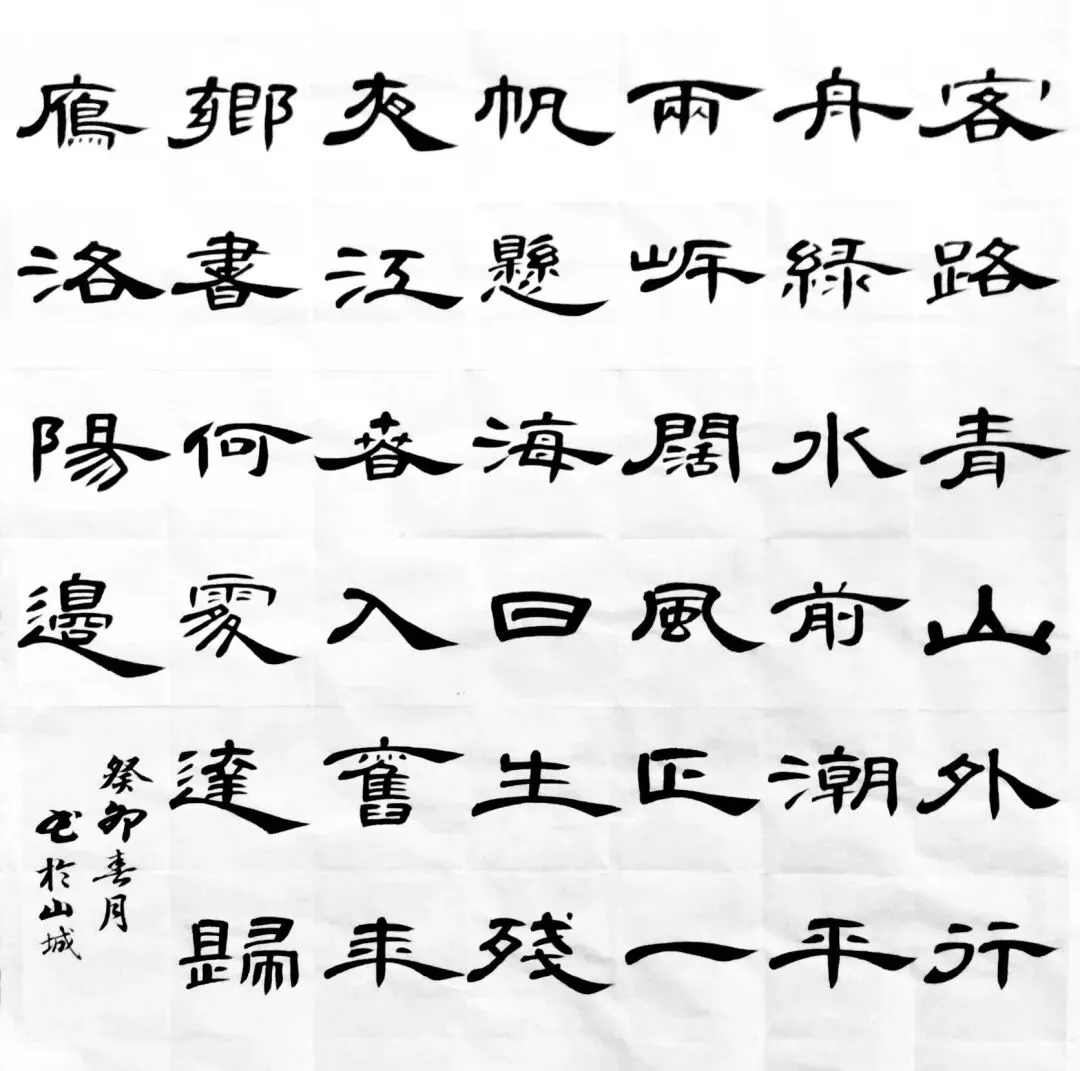 客路青山外行
舟緑水前潮平
兩岸闊風正一
帆懸海日生殘
夜江春入舊来
鄉書何處達歸
鴈洛陽邊
癸卯春月
书於山城